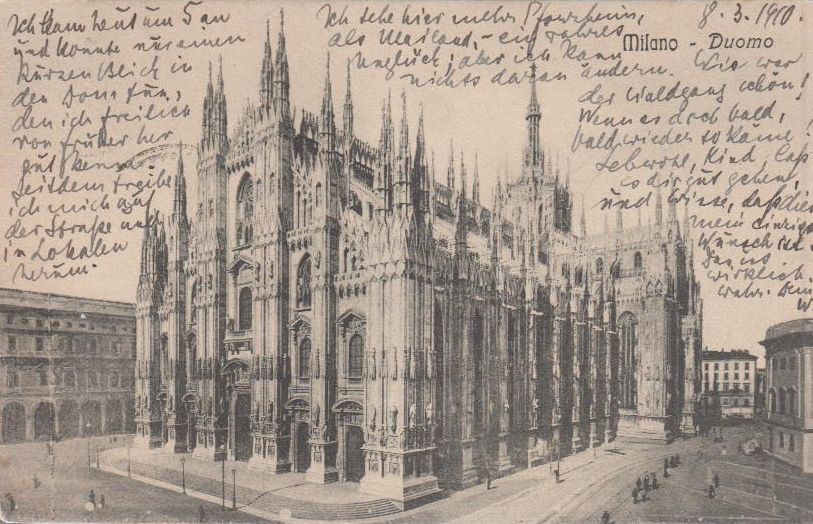 Ich kam heut um 5 an
und konnte nur einen
kurzen Blick in
den Dom tun,
den ich freilich
von früher her
gut kenne.
Seitdem treibe
ich mich auf
der Straße und
in Lokalen
herum.
Ich sehe hier mehr Pforzheim,
als Mailand, - ein wahres
Unglück; aber ich kann
nichts daran ändern. Wie war
der Waldgang schön!
Wenn er doch bald,
bald wieder so käme!
Lebwohl, Kind, lass
es dir gut gehen,
und wisse, daß dies
mein einziger
Wunsch ist.
Das ist
wirklich
wahr. Dein
W
8.3.1910.
Milano - Duomo